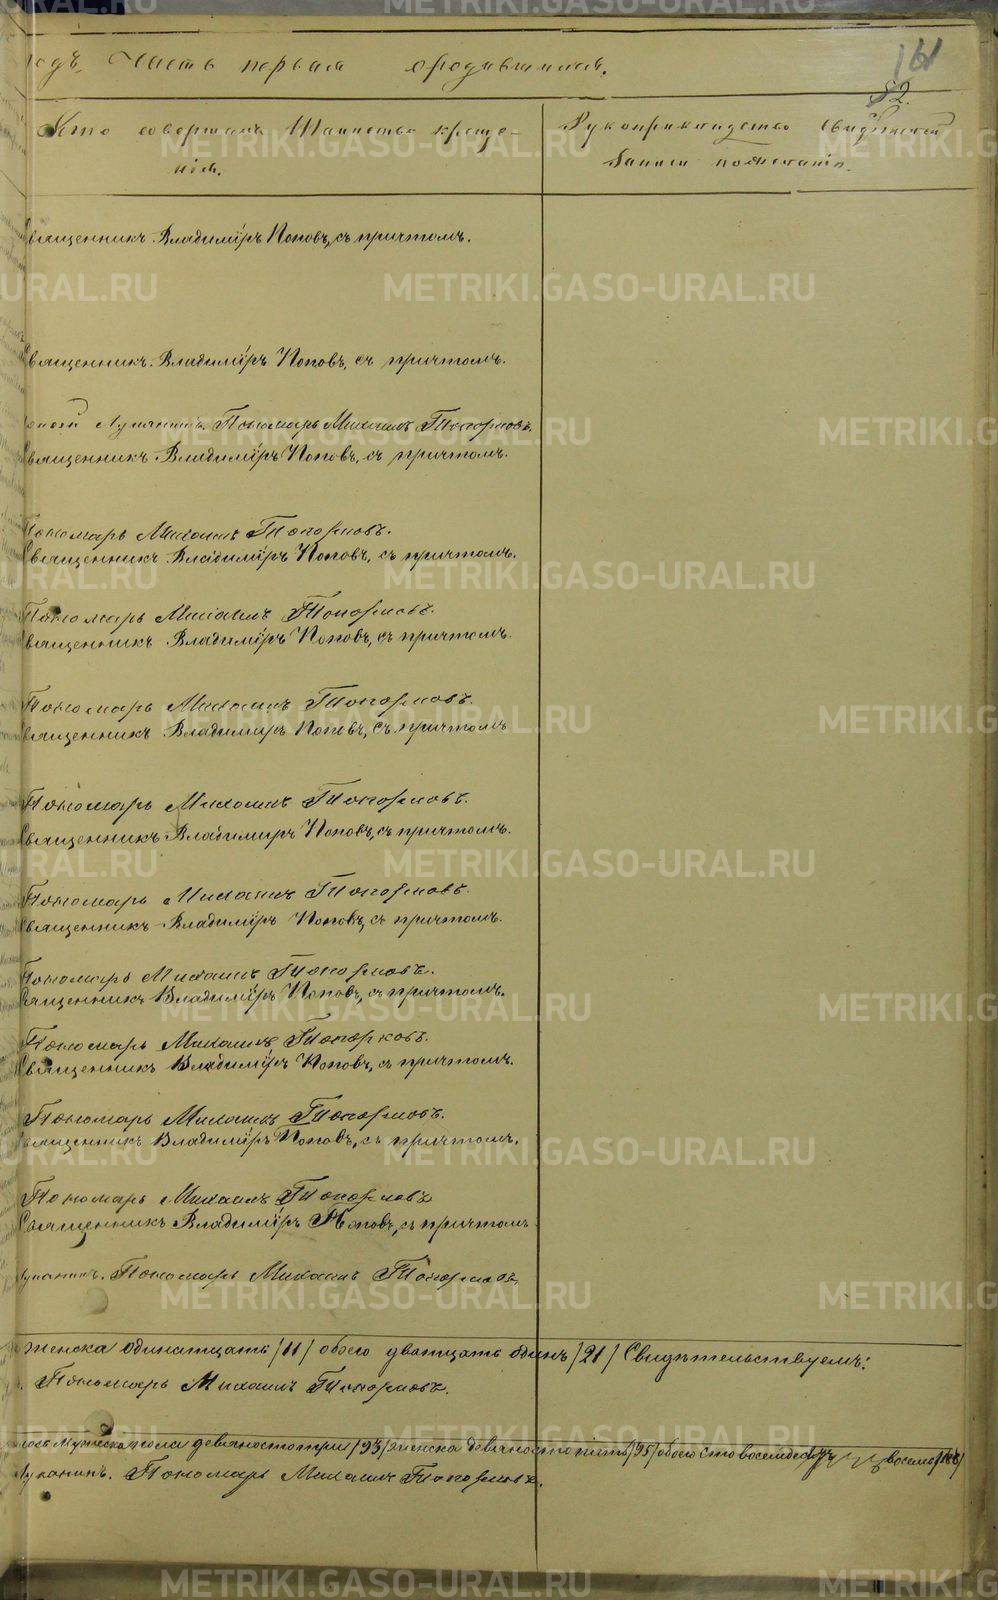 годъ, Часть первая о родившихся.
161
82.
Кто совершалъ Таинство креще-
нія.
Рукоприкладство свидѣтелей
записи по желанію.
Священникъ Владиміръ Поповъ, съ причтомъ.
Священникъ Владиміръ Поповъ, съ причтомъ.
Лупанинъ. Пономарь Михаилъ Топорковъ.
Священникъ Владиміръ Поповъ, съ причтомъ.
Пономарь Михаилъ Топорковъ.
Священникъ Владиміръ Поповъ, съ причтомъ.
Пономарь Михаилъ Топорковъ.
Священникъ Владиміръ Поповъ, съ причтомъ.
Пономарь Михаилъ Топорковъ.
Священникъ Владиміръ Поповъ, съ причтомъ
Пономарь Михаилъ Топорковъ.
Священникъ Владиміръ Поповъ, съ причтомъ.
Пономарь Михаилъ Топорковъ.
Священникъ Владиміръ Поповъ, съ причтомъ.
Пономарь Михаилъ Топорковъ.
Священникъ Владиміръ Поповъ, съ причтомъ.
Пономарь Михаилъ Топорковъ.
Священникъ Владиміръ Поповъ, съ причтомъ.
Пономарь Михаилъ Топорковъ.
Священникъ Владиміръ Поповъ, съ причтомъ.
Пономарь Михаилъ Топорковъ
Священникъ Владиміръ Поповъ, съ причтомъ
Лупанинъ. Пономарь Михаилъ Топорковъ.
женска одинатцать /11/ обоего дватцать одинъ /21/ Свидѣтельствуемъ:
Пономарь Михаилъ Топорковъ.
Мужеска пола девяносто три /93/ женска девяносто пять /95/ обоего сто восемьдесятъ восемь /188/
Лупанинъ. Пономарь Михаилъ Топорковъ.
METRIKI.GASO-URAL.RU